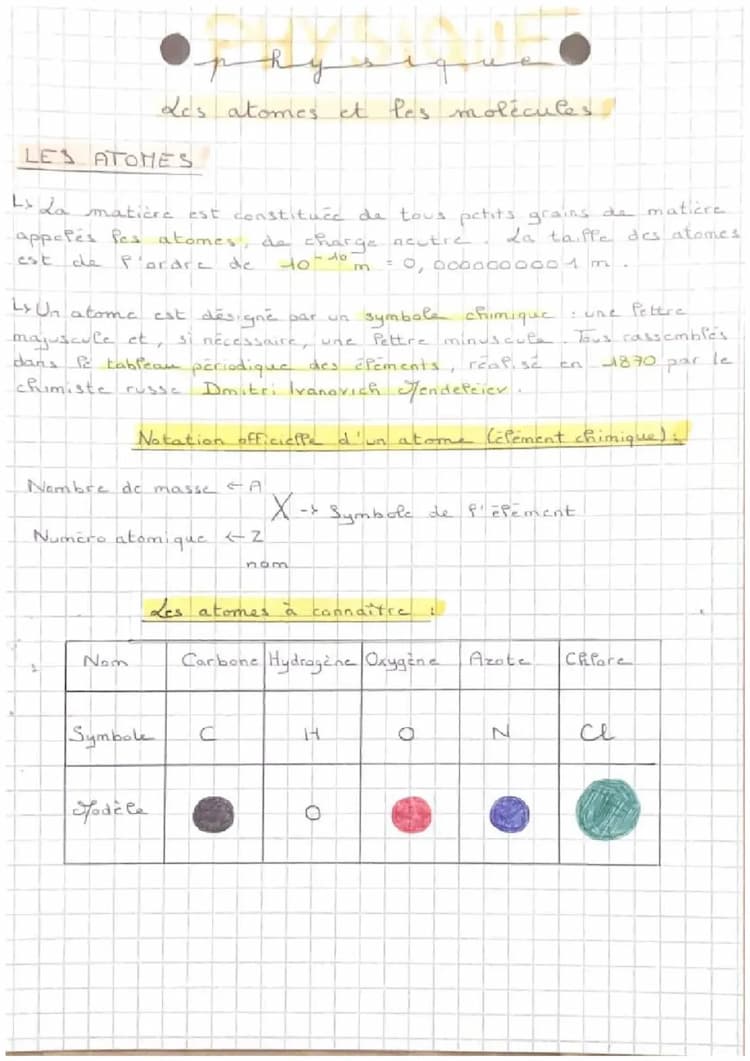 PHYSIQUE
physique
Les atomes et les molécules
LES ATOMES
↳ La matière est constituée de tous petits grains de matière
appelés les atomes, de charge neutre. La taille des atomes
est de l'ordre de 10⁻¹⁰ m = 0,0000000001 m.
↳ Un atome est désigné par un symbole chimique : une lettre
majuscule et, si nécessaire, une lettre minuscule. Tous rassemblés
dans le tableau périodique des éléments, réalisé en 1870 par le
chimiste russe Dmitri Ivanovich Mendeleiev.
Notation officielle d'un atome (élément chimique) :
Nombre de masse ← A
X → Symbole de l'élément
Numéro atomique ← Z
nom
Les atomes à connaître :
Nom Carbone Hydrogène Oxygène Azote Chlore
Symbole C H O N Cl
Modèle